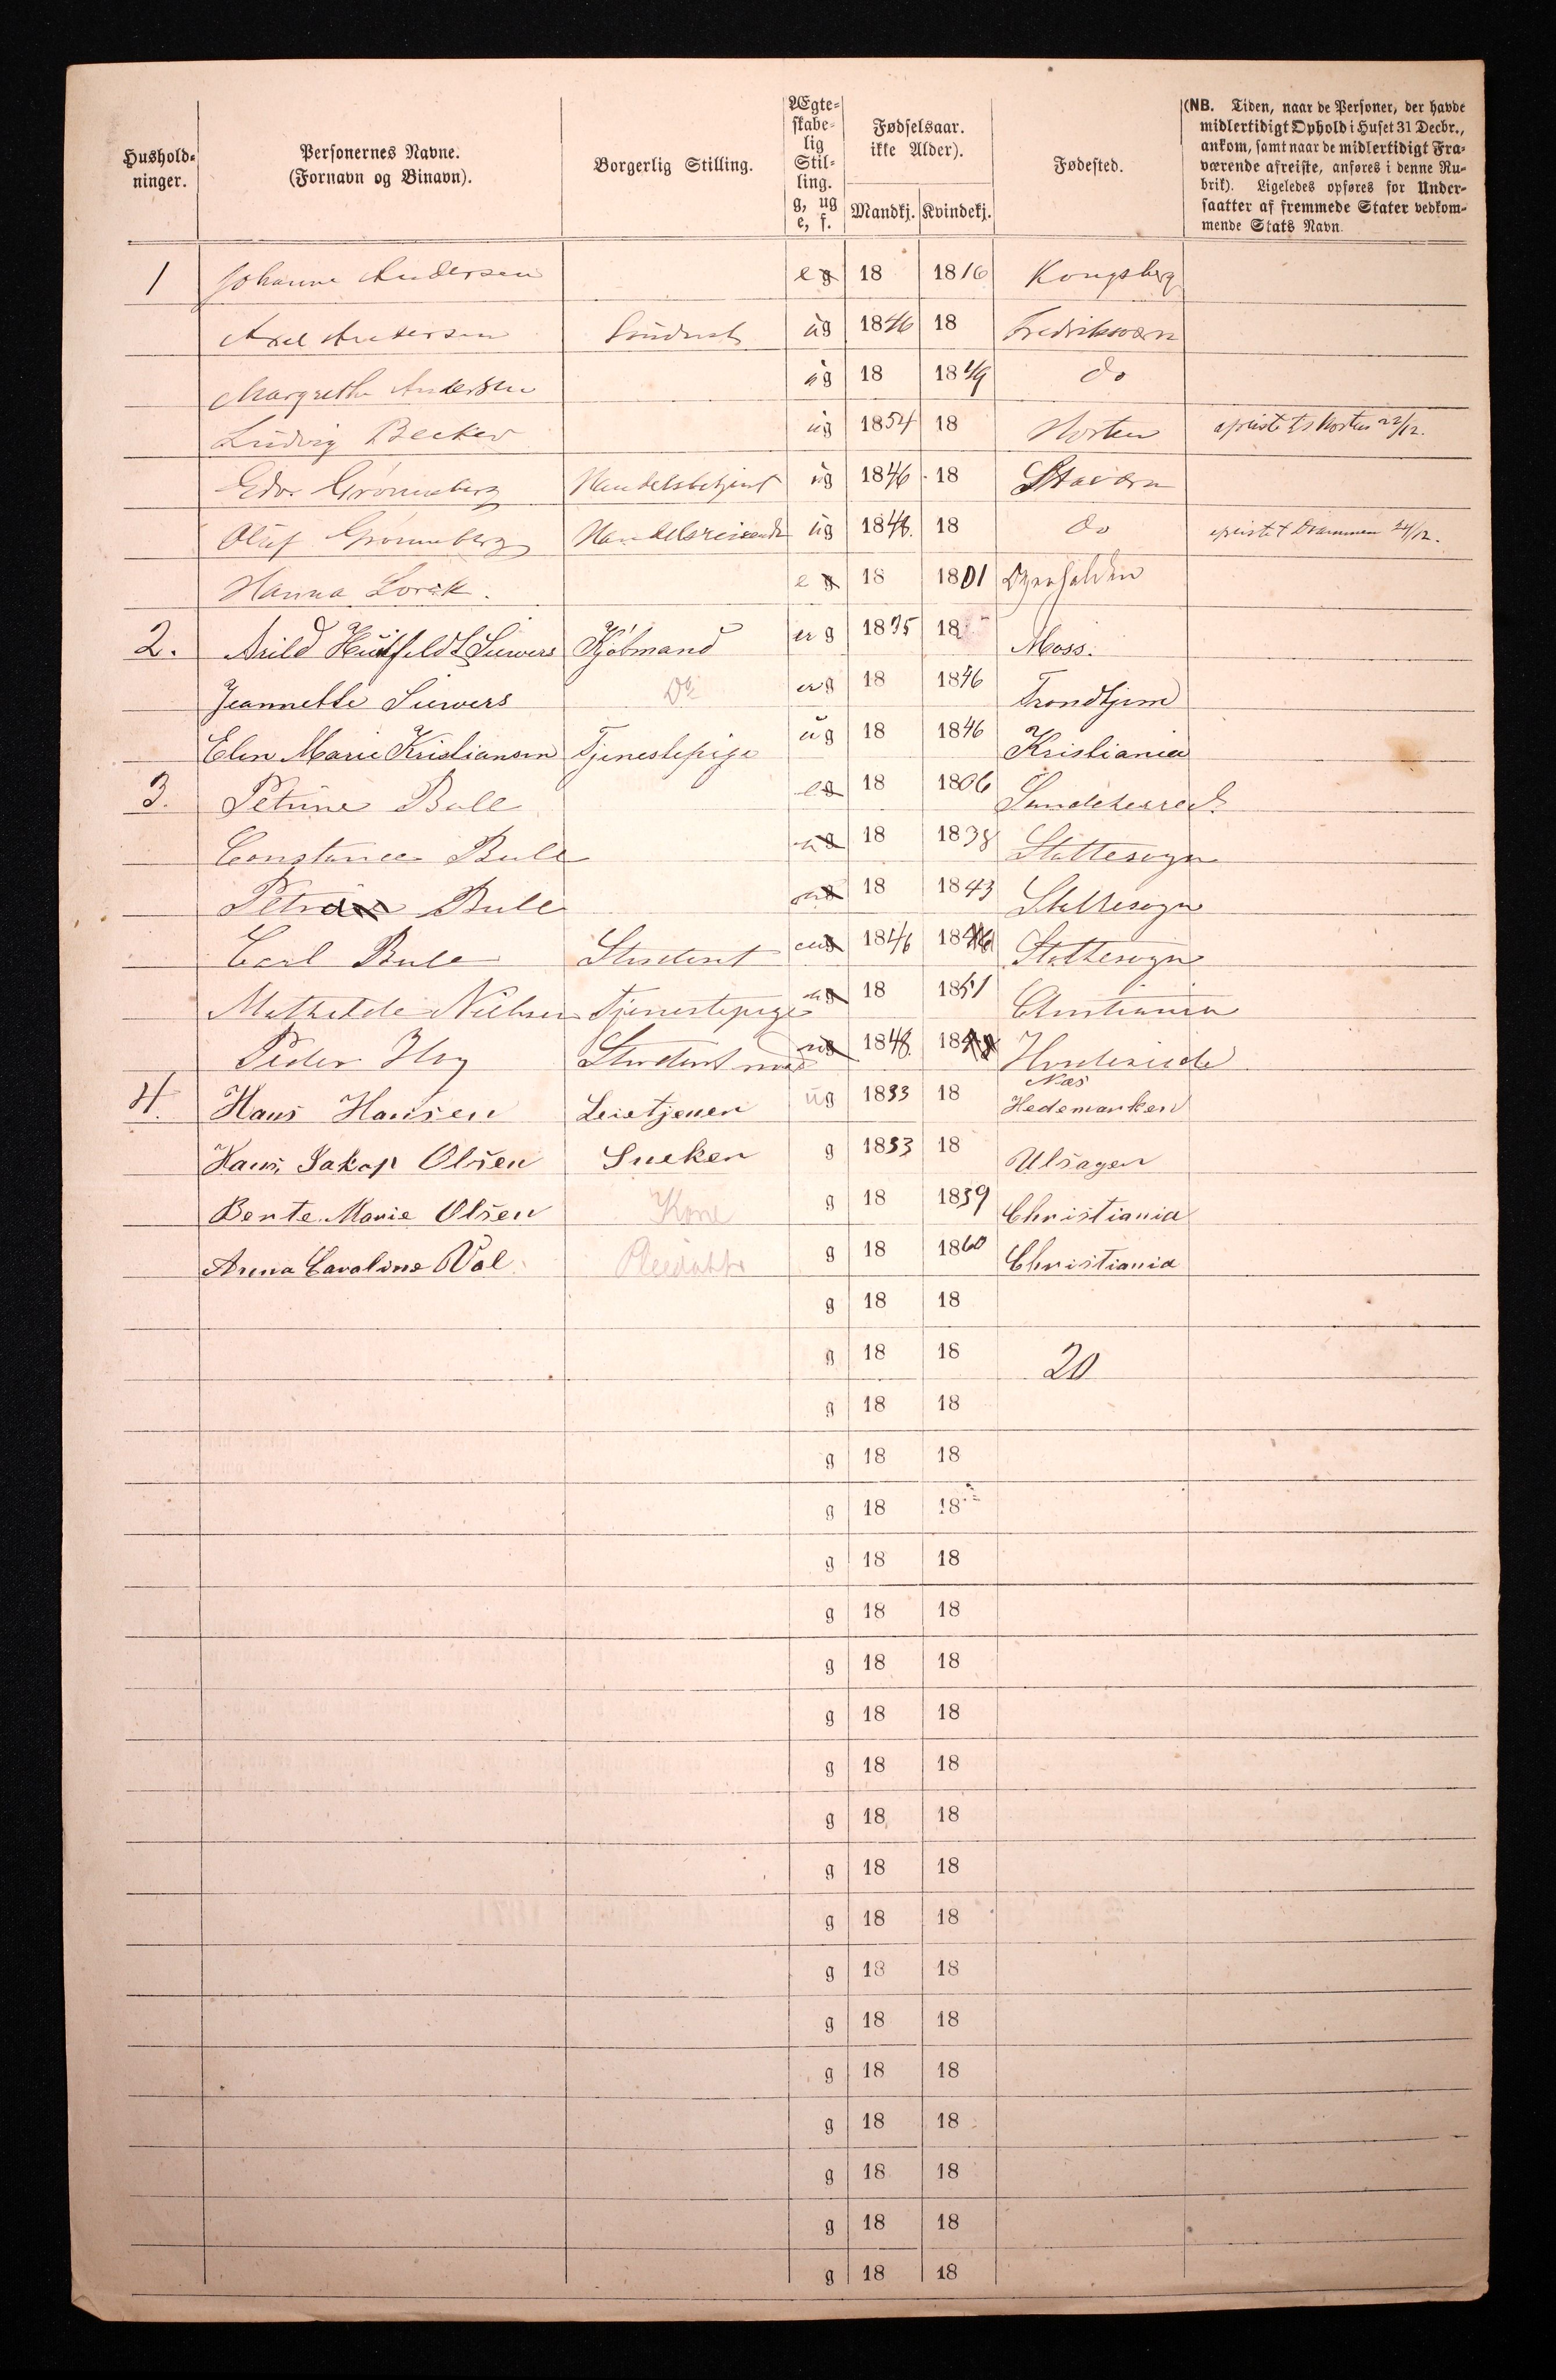 Hushold-
ninger.
Personernes Navne.
(Fornavn og Binavn).
Borgerlig Stilling.
Ægte-
skabe-
lig
Stil-
ling.
g, ug
e, f.
Fødselsaar.
ikke Alder).
Mandkj. Kvindekj.
Fødested.
(NB. Tiden, naar de Personer, der havde
midlertidigt Ophold i Huset 31 Decbr.,
ankom, samt naar de midlertidigt Fra-
værende afreiste, anføres i denne Ru-
brik). Ligeledes opføres for Under-
saatter af fremmede Stater vedkom-
mende Stats Navn.
1 Johanne Andersen e g 18 1816 Kongsberg
Axel Andersen Student ug 1846 18 Fredriksværn
Margrethe Andersen ug 18 1849 do
Ludvig Becker ug 1854 18 Horten afreiste til Horten 22/12.
Edv. Grønneberg Handelsbetjent ug 1846 18 Stavern
Oluf Grønneberg Handelsreisende ug 1848. 18 do afreist t Drammen 24/12.
Hanna Lorck. e g 18 1801
2. Arild Huitfeldt Siewers Kjøbmand er g 1835 18 Moss.
Jeannette Siewers Do er g 18 1846 Trondhjem
Elen Marie Kristiansen Tjenestepige ug 18 1846 Kristiania
3. Petrine Bull e g 18 1806 Sandeherred
Constance Bull ug 18 1838 Slattesogn
Bull ug 18 1843 Slattesogn
Carl Bull Student ug 1846 1846 Slattesogn
Mathilde Nielsen Tjenestepige ug 18 1851 Christiania
Peder Student ug 1848. 1848
4. Hans Hansen Leietjener ug 1833 18 Næs
Hedemarken
Hans Jakop Olsen Sneker g 1833 18 Ulsager
Bente Marie Olsen Kone g 18 1839 Christiania
Anna Caroline Dal. Pleiedatter g 18 1860 Christiania
g 18 18
g 18 18 20
g 18 18
g 18 18
g 18 18
g 18 18
g 18 18
g 18 18
g 18 18
g 18 18
g 18 18
g 18 18
g 18 18
g 18 18
g 18 18
g 18 18
g 18 18
g 18 18
g 18 18
g 18 18